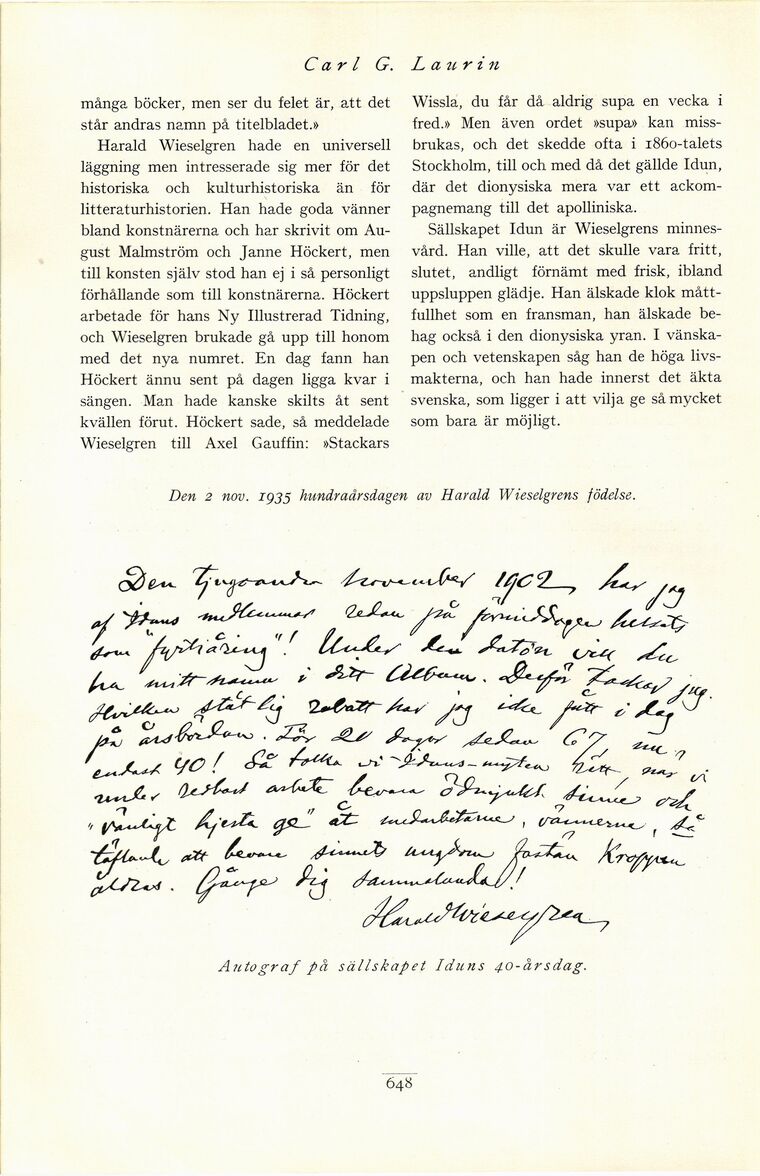 Carl G. Laurin
många böcker, men ser du felet är, att det
står andras namn på titelbladet.»
Harald Wieselgren hade en universell
läggning men intresserade sig mer för det
historiska och kulturhistoriska än för
litteraturhistorien. Han hade goda vänner
bland konstnärerna och har skrivit om Au-
gust Malmström och Janne Höckert, men
till konsten själv stod han ej i så personligt
förhållande som till konstnärerna. Höckert
arbetade för hans Ny Illustrerad Tidning,
och Wieselgren brukade gå upp till honom
med det nya numret. En dag fann han
Höckert ännu sent på dagen ligga kvar i
sängen. Man hade kanske skilts åt sent
kvällen förut. Höckert sade, så meddelade
Wieselgren till Axel Gauffin: »Stackars
Wissla, du får då aldrig supa en vecka i
fred.» Men även ordet »supa» kan miss-
brukas, och det skedde ofta i 1860-talets
Stockholm, till och med då det gällde Idun,
där det dionysiska mera var ett ackom-
pagnemang till det apolliniska.
Sällskapet Idun är Wieselgrens minnes-
vård. Han ville, att det skulle vara fritt,
slutet, andligt förnämt med frisk, ibland
uppsluppen glädje. Han älskade klok mått-
fullhet som en fransman, han älskade be-
hag också i den dionysiska yran. I vänska-
pen och vetenskapen såg han de höga livs-
makterna, och han hade innerst det äkta
svenska, som ligger i att vilja ge så mycket
som bara är möjligt.
Den 2 nov. 1935 hundraårsdagen av Harald Wieselgrens födelse.
Den tjugoandra November 1902, har jag
af Iduns medlemmar redan på förmiddagen helsats
som "fyrtiåring"! Under den daton vill du
ha mitt namn i ditt Album. Derför tackar jag.
Hvilken ståtlig rabatt har jag icke fått i dag
på årsbördan. För 20 dagar sedan 67, nu
endast 40! Så tolka vi Iduns-myten rätt, när vi
under redbart arbete bevara ödmjukt sinne och
"vänligt hjerta ge" åt medarbetarne, vännerne, så
täflande att bevara sinnets ungdom fastän Kroppen
åldras. Gånge dig sammalunda!
Harald Wieselgren
Autograf på sällskapet Iduns 40-årsdag.
648